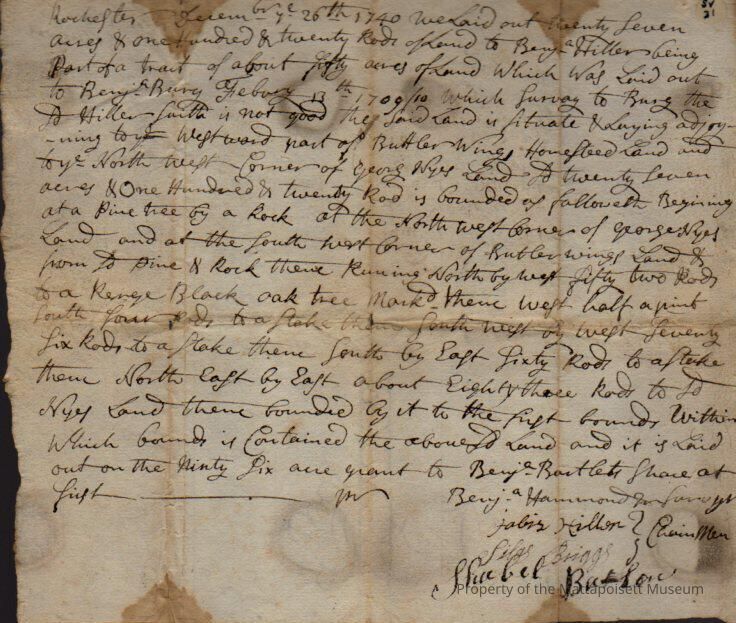 Rochester Decembr ye 26th 1740 We Laid out twenty Seven
acres & one Hundred & twenty Rods of Land to Benja Hiller being
Part of a tract of about fifty acres of Land Which Was Laid out
to Benja Burg Febury 13th 1709/10 Which Survay to Burg the
Sd Hiller saith is not good the Said Land is Situate & Laying adjoy-
-ning to ye Westward part of Buttler Wings Homesteed Land and
to ye North West Corner of Georg Nyes Land Sd twenty Seven
acres & One Hundred & twenty Rod is bounded as followeth Begining
at a Pine tree by a Rock at the North west Corner of george Nyes
Land and at the South west Corner of Butler wings Land &
from Sd Pine & Rock thence Runing North by west fifty two Rods
to a Black oak tree Markd thence west half a pint
South four Rods to a Stake thence South west by west Seventy
Six Rods to a Stake thence South by East Sixty Rods to a Stake
thence North East by East about Eighty three Rods to Sd
Nyes Land thence bounded by it to the first bounds Within
Which bounds is Contained the aboveSd Land and it is Laid
out on the Ninty Six acre grant to Benja Bartlets Share at
first pr
Benja Hammond Jr Survayr
Jabiz Hiller
Chain Men
Silas Briggs
Shubel Barlow
Property of the Mattapoisett Museum